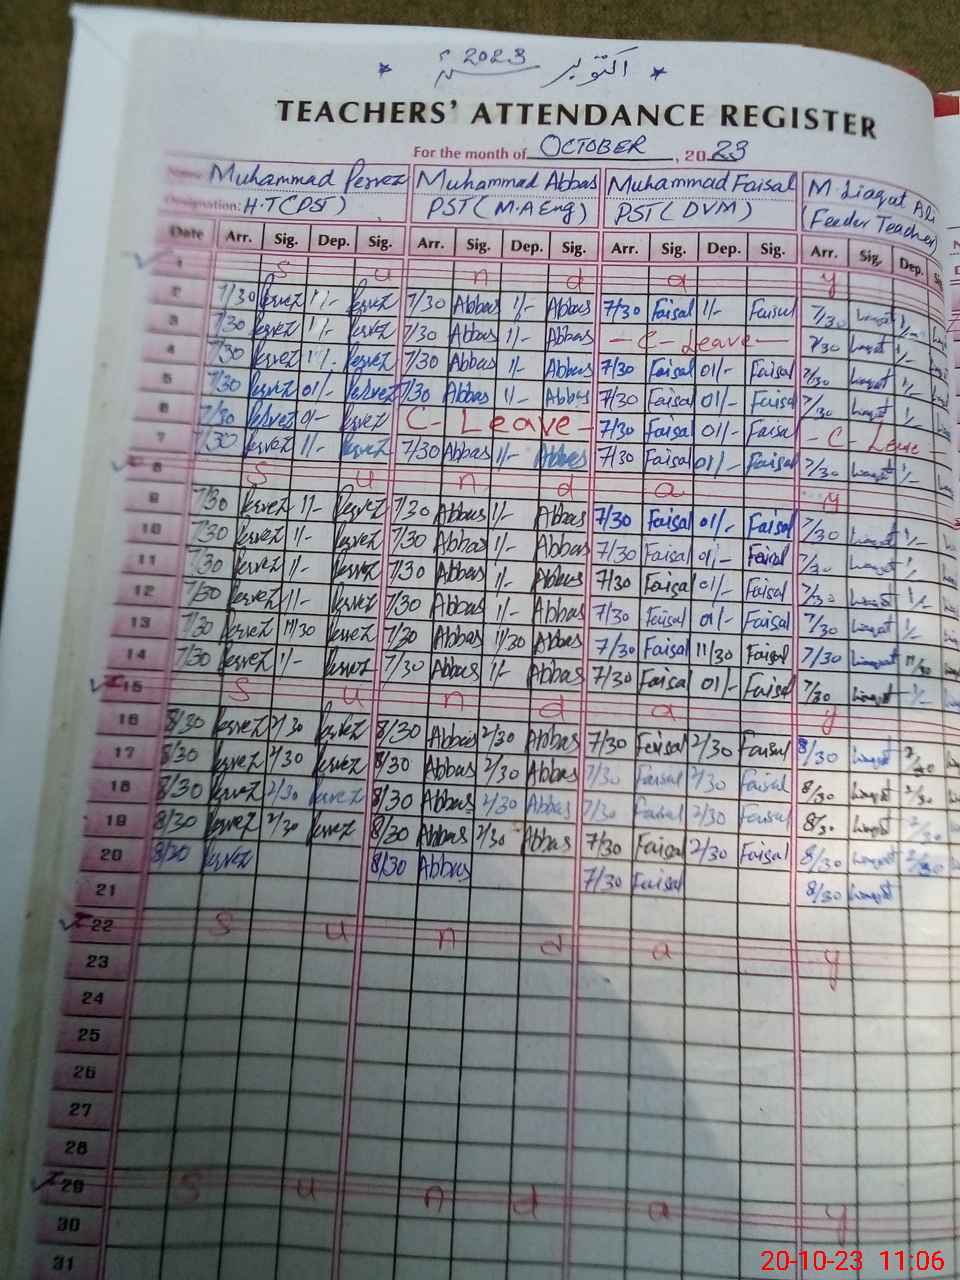 * اکتوبر 2023ء *
TEACHERS' ATTENDANCE REGISTER
For the month of OCTOBER, 2023
Name: Muhammad Pervez Muhammad Abbas Muhammad Faisal M. Liaqat Ali
Designation: H.T(PST) PST(M.A Eng) PST(DVM) (Feeder Teacher)
Date Arr. Sig. Dep. Sig. Arr. Sig. Dep. Sig. Arr. Sig. Dep. Sig. Arr. Sig. Dep.
1 S u n d a y
2 7/30 Pervez 1/- Pervez 7/30 Abbas 1/- Abbas 7/30 Faisal 1/- Faisal 7/30 Liaqat 1/-
3 7/30 Pervez 1/- Pervez 7/30 Abbas 1/- Abbas - C - Leave - 7/30 Liaqat 1/-
4 7/30 Pervez 1/- Pervez 7/30 Abbas 1/- Abbas 7/30 Faisal 01/- Faisal 7/30 Liaqat 1/-
5 7/30 Pervez 01/- Pervez 7/30 Abbas 1/- Abbas 7/30 Faisal 01/- Faisal 7/30 Liaqat 1/-
6 7/30 Pervez 0/- Pervez C - Leave - 7/30 Faisal 01/- Faisal - C - Leave -
7 7/30 Pervez 1/- Pervez 7/30 Abbas 1/- Abbas 7/30 Faisal 01/- Faisal 7/30 Liaqat 1/-
8 S u n d a y
9 7/30 Pervez 1/- Pervez 7/30 Abbas 1/- Abbas 7/30 Faisal 01/- Faisal 7/30 Liaqat 1/-
10 7/30 Pervez 1/- Pervez 7/30 Abbas 1/- Abbas 7/30 Faisal 01/- Faisal 7/30 Liaqat 1/-
11 7/30 Pervez 1/- Pervez 7/30 Abbas 1/- Abbas 7/30 Faisal 01/- Faisal 7/30 Liaqat 1/-
12 7/30 Pervez 1/- Pervez 7/30 Abbas 1/- Abbas 7/30 Faisal 01/- Faisal 7/30 Liaqat 1/-
13 7/30 Pervez 11/30 Pervez 7/30 Abbas 11/30 Abbas 7/30 Faisal 11/30 Faisal 7/30 Liaqat 11/30
14 7/30 Pervez 1/- Pervez 7/30 Abbas 1/- Abbas 7/30 Faisal 01/- Faisal 7/30 Liaqat 1/-
15 S u n d a y
16 8/30 Pervez 2/30 Pervez 8/30 Abbas 2/30 Abbas 7/30 Faisal 2/30 Faisal 8/30 Liaqat 2/30
17 8/30 Pervez 2/30 Pervez 8/30 Abbas 2/30 Abbas 7/30 Faisal 2/30 Faisal 8/30 Liaqat 2/30
18 8/30 Pervez 2/30 Pervez 8/30 Abbas 2/30 Abbas 7/30 Faisal 2/30 Faisal 8/30 Liaqat 2/30
19 8/30 Pervez 2/30 Pervez 8/30 Abbas 2/30 Abbas 7/30 Faisal 2/30 Faisal 8/30 Liaqat 2/30
20 8/30 Pervez 8/30 Abbas 7/30 Faisal 8/30 Liaqat
21
22 S u n d a y
23
24
25
26
27
28
29 S u n d a y
30
31
20-10-23 11:06